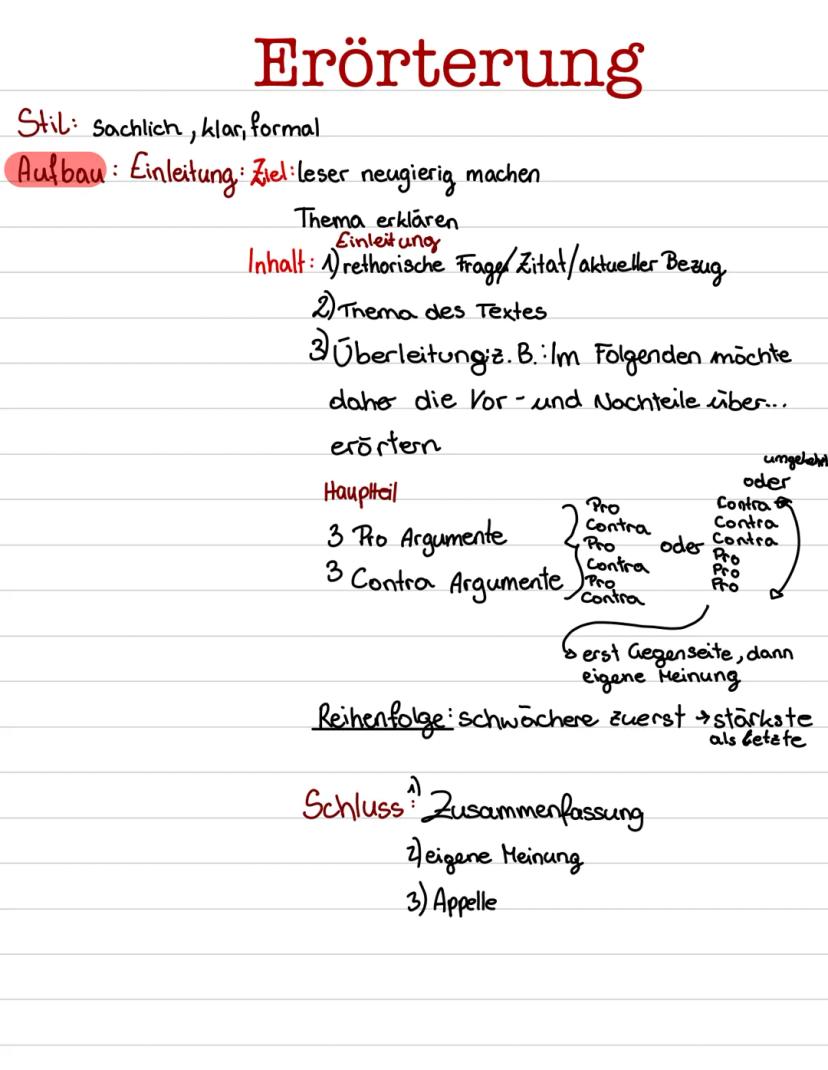 Erörterung
Stil: sachlich, klar, formal
Aufbau: Einleitung: Ziel: leser neugierig machen
Thema erklären
Einleitung
Inhalt: 1) rethorische Frage/Zitat/aktueller Bezug
2) Thema des Textes
3) Überleitung: z. B.: Im Folgenden möchte
daher die Vor- und Nachteile über...
erörtern
Hauptteil
3 Pro Argumente
3 Contra Argumente
Pro
Contra
Pro
Contra
Pro
Contra
oder
umgekehrt
oder
Contra
Contra
Contra
Pro
Pro
Pro
erst Gegenseite, dann
eigene Meinung
Reihenfolge: schwächere zuerst → stärkste
als letzte
Schluss: 1) Zusammenfassung
2) eigene Meinung
3) Appelle